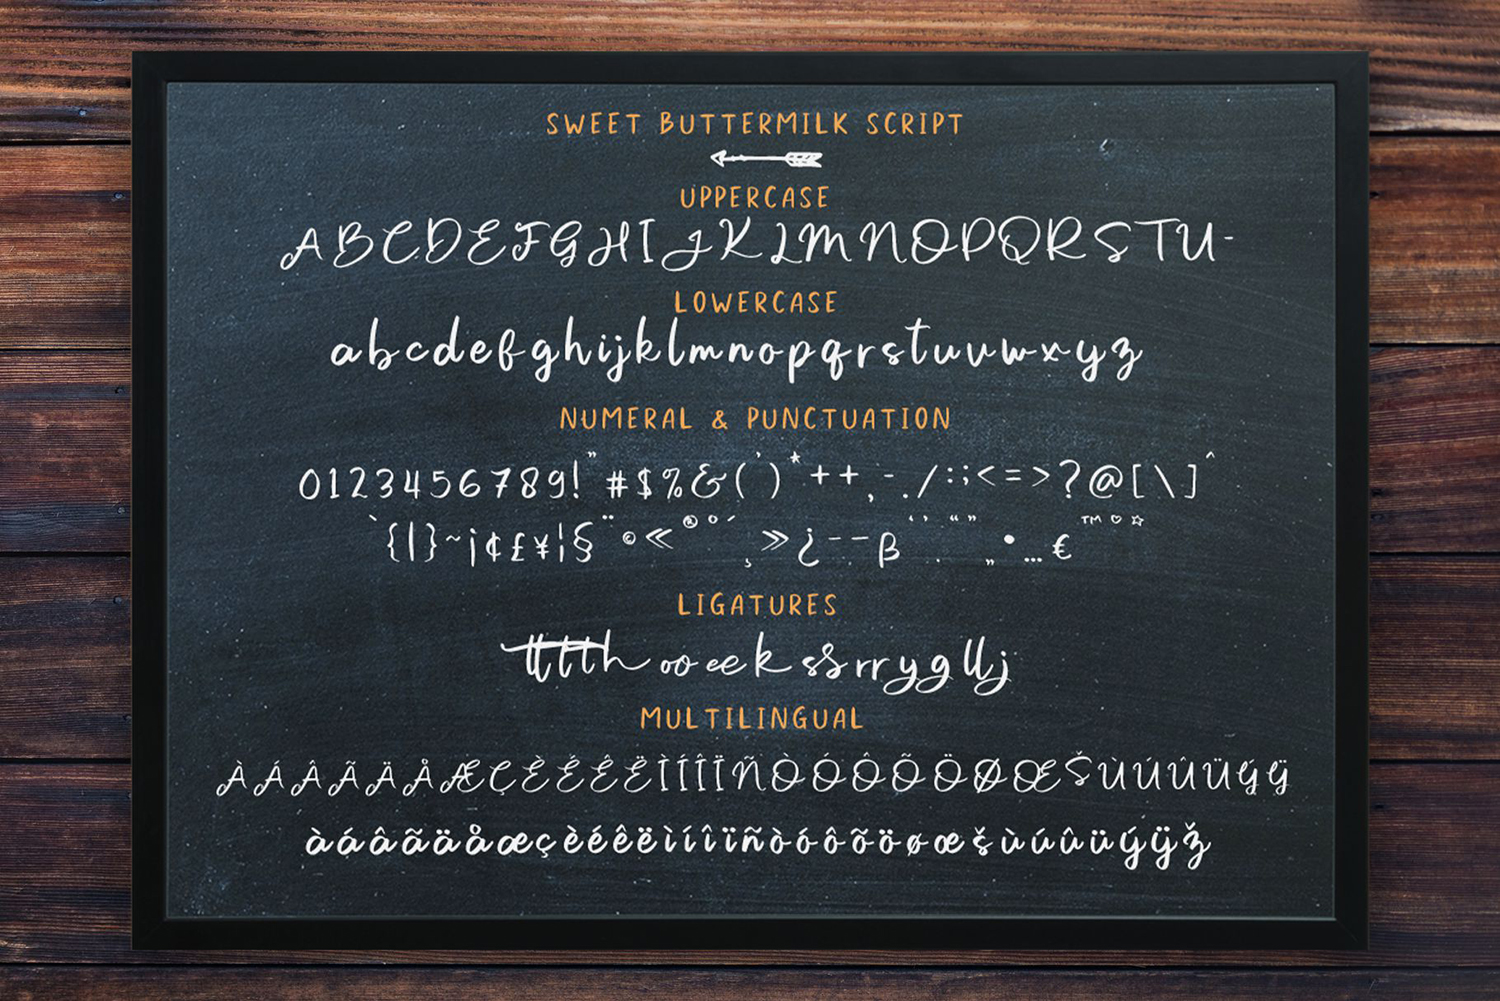 SWEET BUTTERMILK SCRIPT
UPPERCASE
ABCDEFGHIJKLMNOPQRSTU-
LOWERCASE
abcdefghijklmnopqrstuvwxyz
NUMERAL & PUNCTUATION
0123456789!"#$%&(')*++,-./:;<=>?@[\]^
`{|}~¡¢£¥¦§¨©«®°´¸»¿--β‘’“”„•…€™♡☆
LIGATURES
tt tt th oo ee k ss rr y g ll j
MULTILINGUAL
ÀÁÂÃÄÅÆÇÈÉÊËÌÍÎÏÑÒÓÔÕÖØŒŠÙÚÛÜÝŸ
àáâãäåæçèéêëìíîïñòóôõöøœšùúûüýÿž